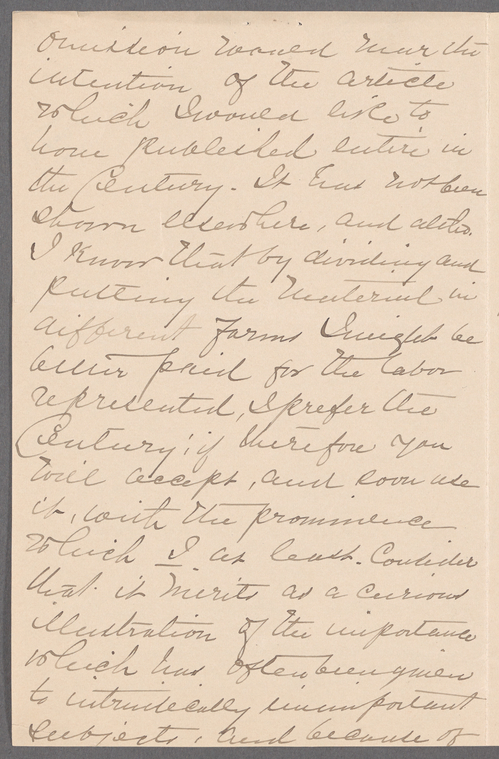 omission would mar the
intention of the article
which I would like to
have published entire in
the Century. It has not been
shown elsewhere, and altho.
I know that by dividing and
putting the material in
different forms I might be
better paid for the labor
represented, I prefer the
Century; if therefore you
will accept, and soon use
it, with the prominence
which I at least. Consider
that it merits as a curious
illustration of the importance
which has often been given
to intrinsically unimportant
subjects, and because of